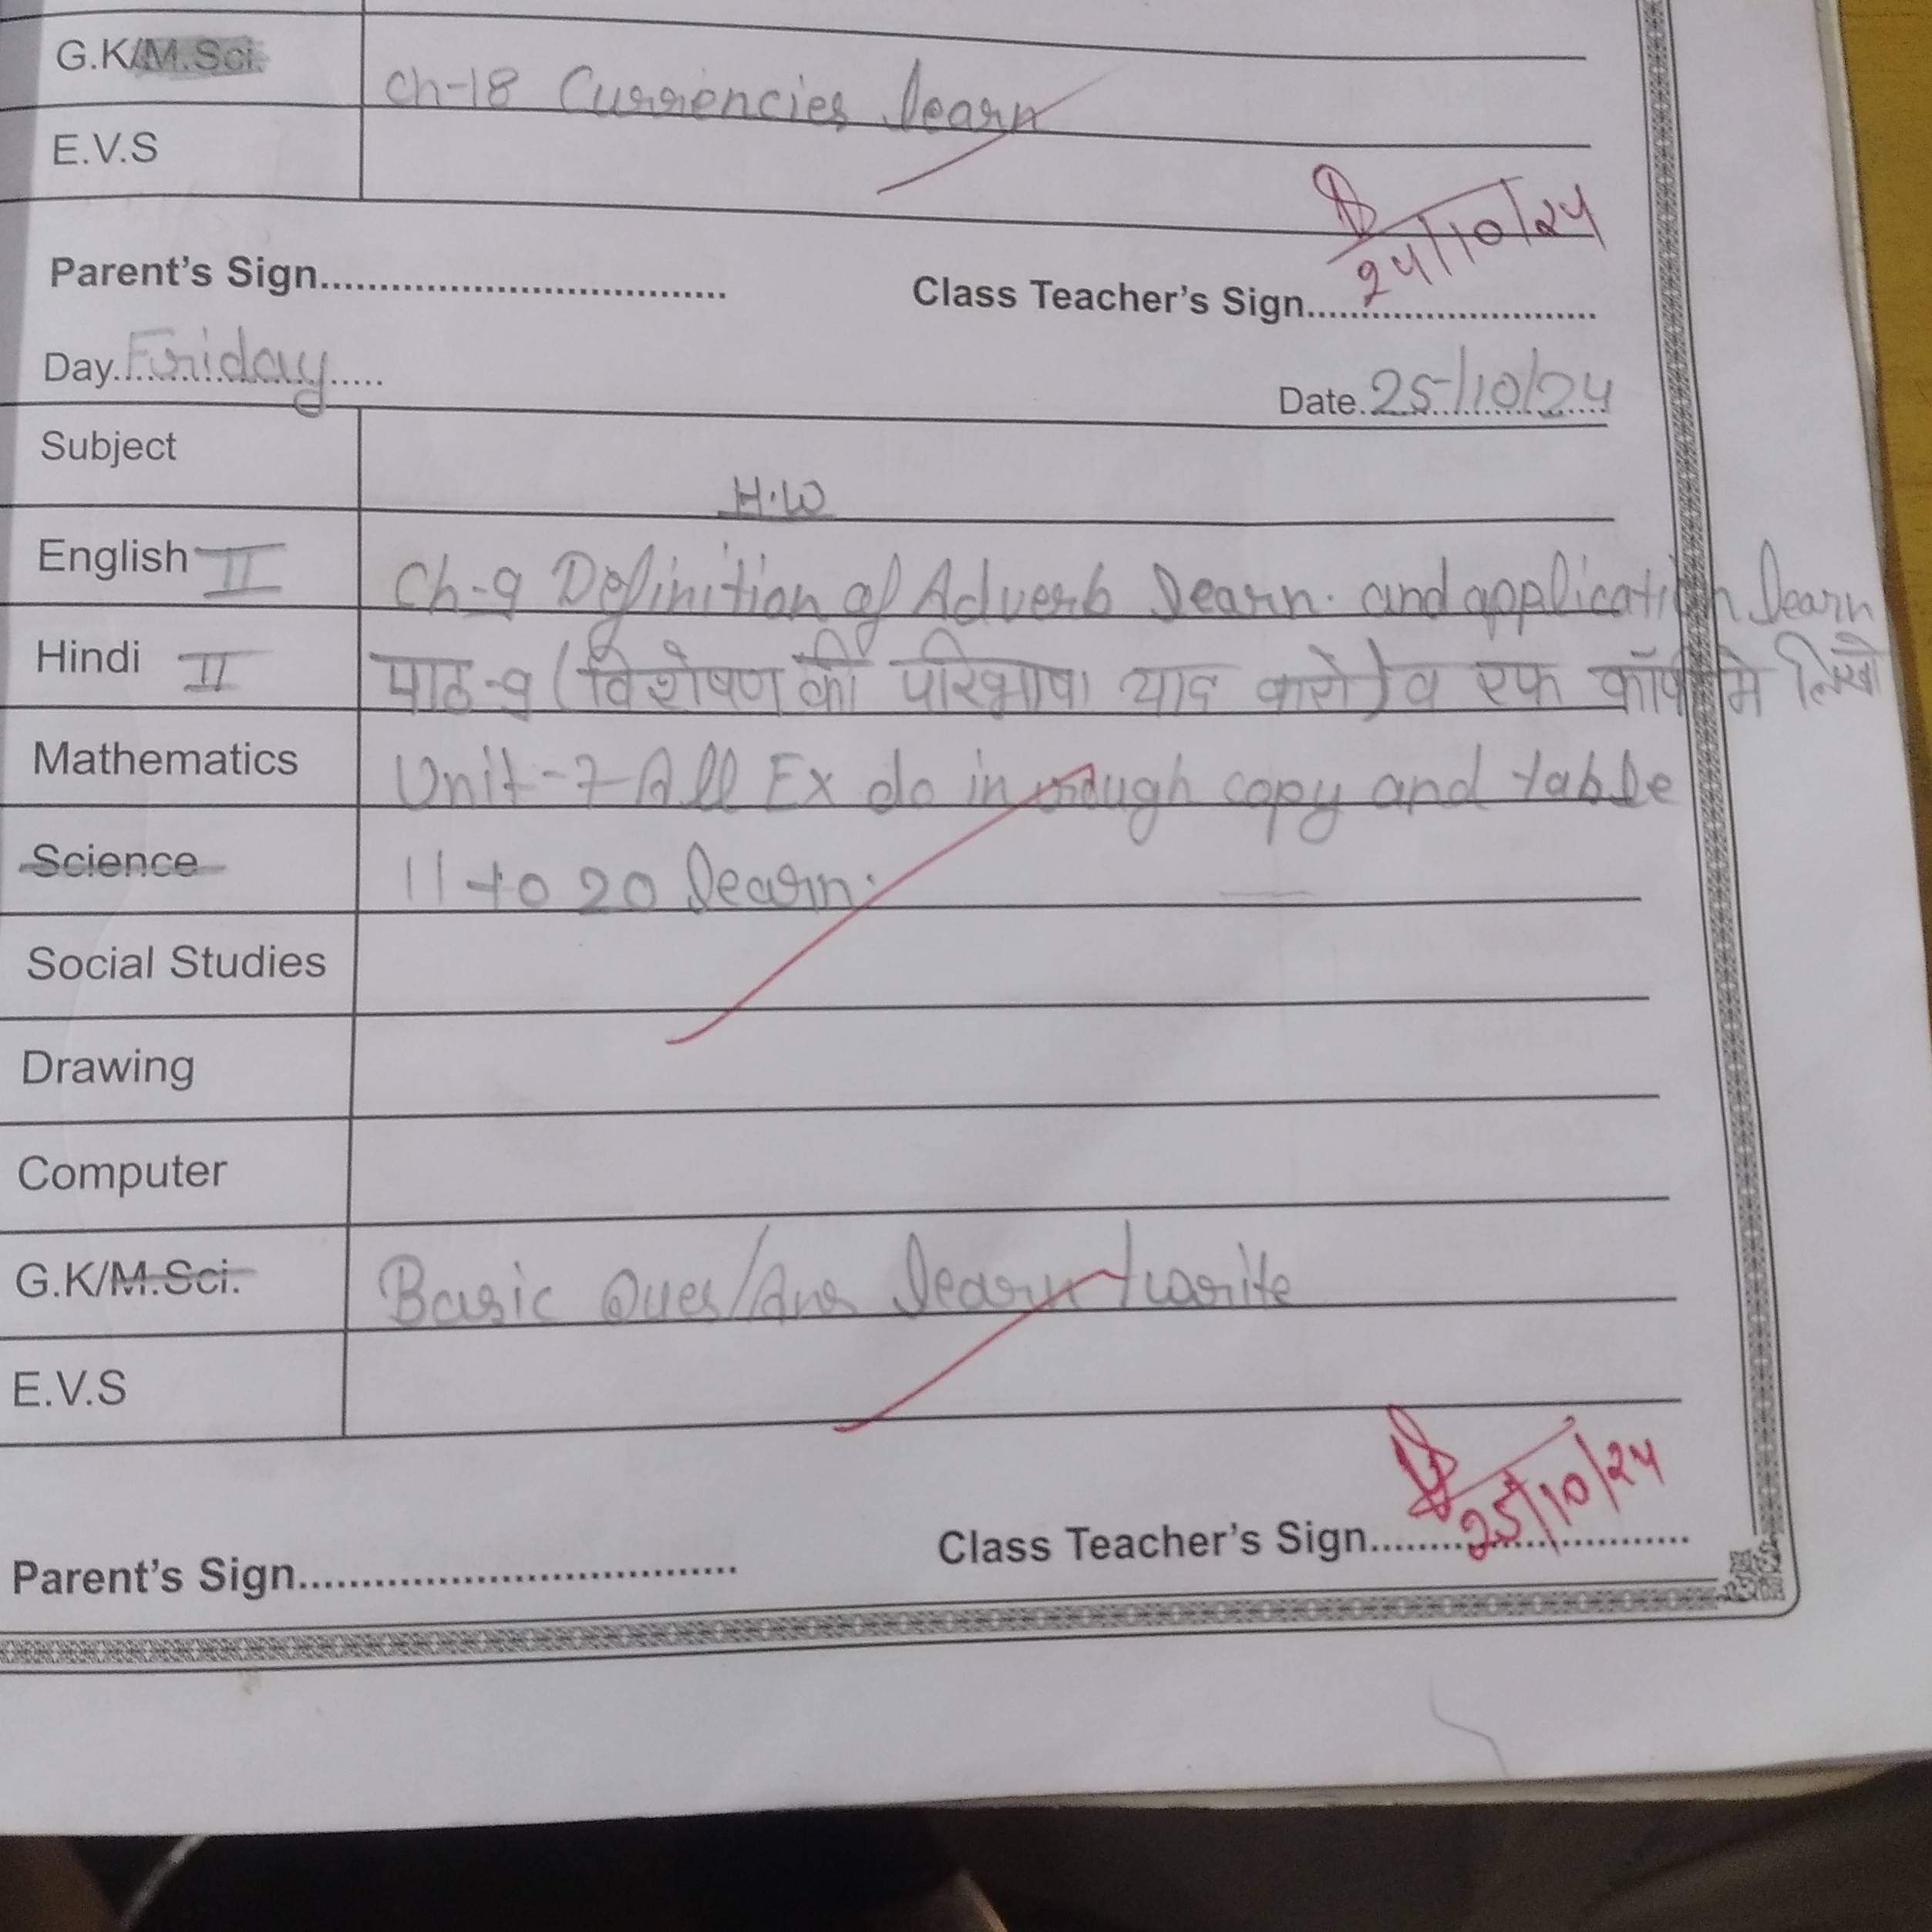 G.K/M.Sci.
Ch-18 Currencies learn
E.V.S
24/10/24
Parent's Sign.................................. Class Teacher's Sign..........................
Day. Friday..... Date. 25/10/24
Subject H.W
English II Ch-9 Definition of Adverb learn. and application learn
Hindi II पाठ-9 (विशेषण की परिभाषा याद करो) व एफ कॉपी मे लिखो
Mathematics Unit-7 All Ex do in rough copy and table
Science 11 to 20 learn.
Social Studies
Drawing
Computer
G.K/M.Sci. Basic Ques/Ans learn + write
E.V.S
25/10/24
Parent's Sign.................................. Class Teacher's Sign..........................